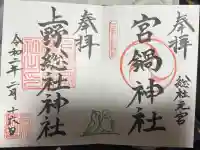 奉拝
総社元宮
宮鍋神社
奉拝
上野総社神社
令和二年二月十六日